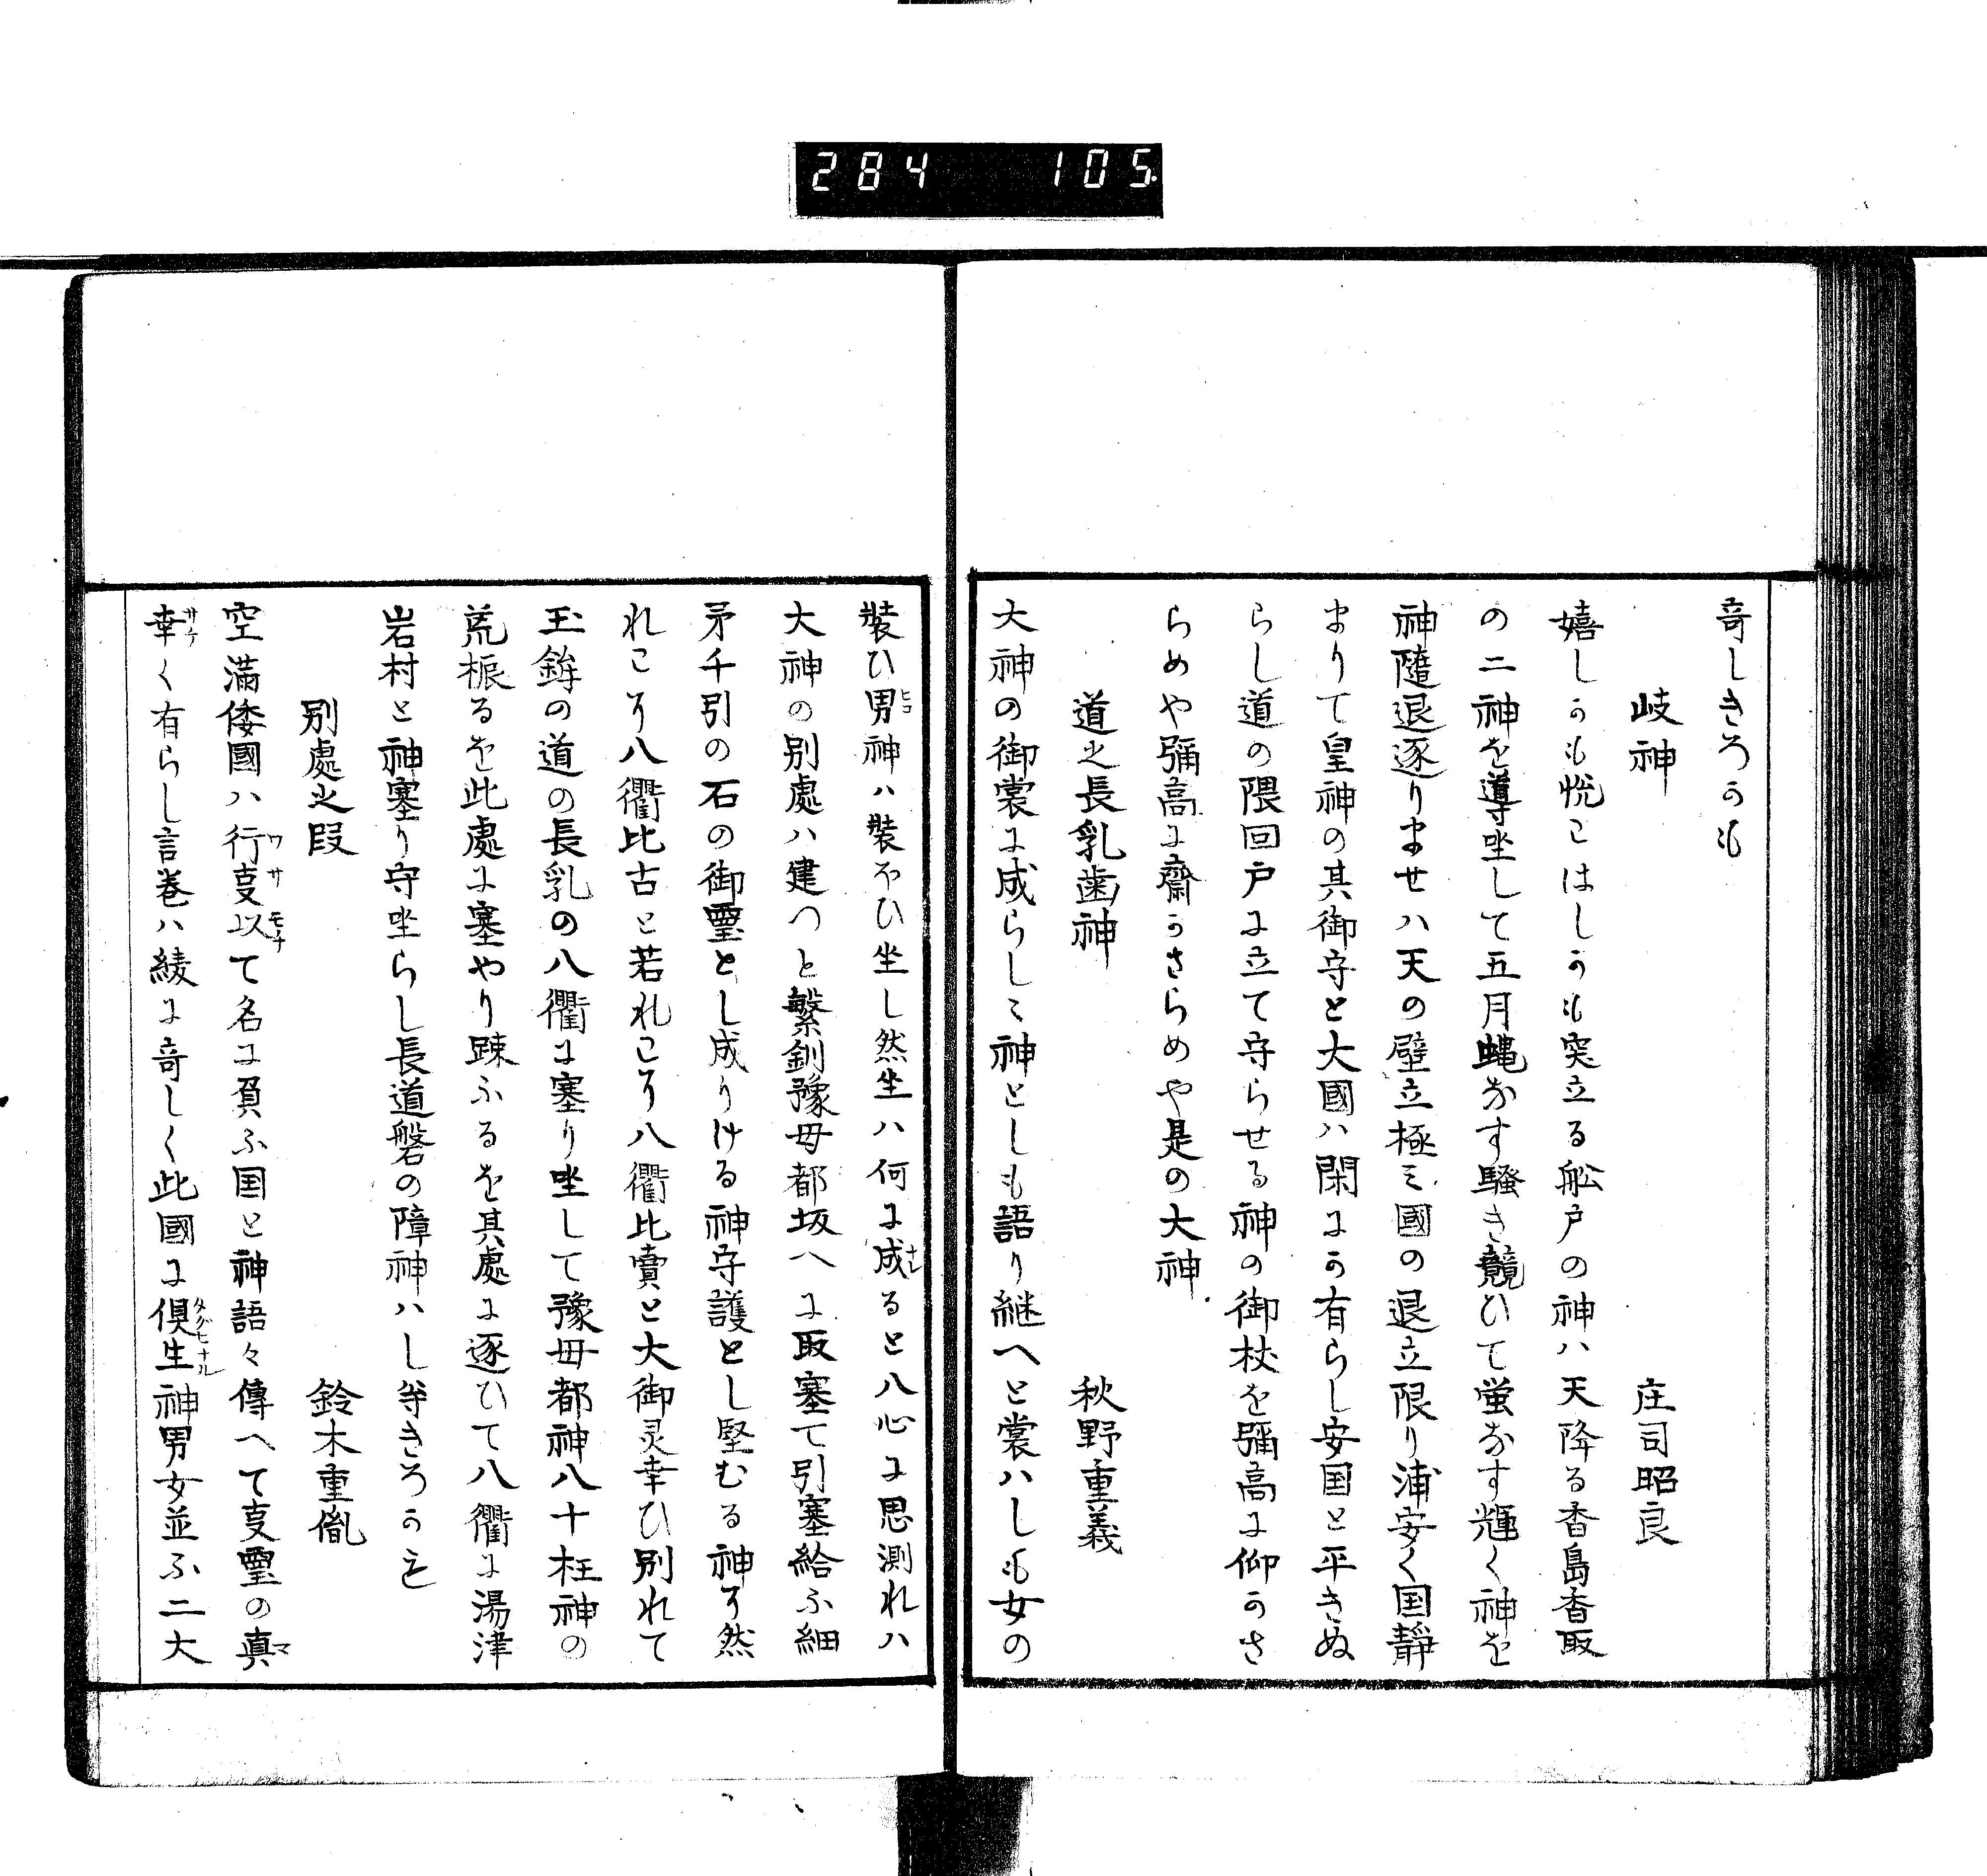 284 105
奇しきろかも
岐神 庄司昭良
嬉しかも悦こはしかも突立る舩戸の神ハ天降る香島香取
の二神を導坐して五月蠅なす騒き競ひて蛍なす輝く神を
神隨退逐りませハ天の壁立極ミ國の退立限り浦安く国静
まりて皇神の其御守と大國ハ閑にか有らし安国と平きぬ
らし道の隈回戸に立て守らせる神の御杖を彌高に仰かさ
らめや彌高に齋かさらめや是の大神
道之長乳歯神 秋野重義
大神の御裳に成らしミ神としも語り継へと裳ハしも女の
装ひ男神ハ装なひ坐し然坐ハ何に成ると八心に思測れハ
大神の別處ハ建つと繋釧豫母都坂へに取塞て引塞給ふ細
矛千引の石の御霊とし成りける神守護とし堅むる神そ然
れこそ八衢比古と若れこそ八衢比賣と大御灵幸ひ別れて
玉鉾の道の長乳の八衢に塞り坐して豫母都神八十枉神の
荒振るを此處に塞やり疎ふるを其處に逐ひて八衢に湯津
岩村と神塞り守坐らし長道磐の障神ハし等きろかも
別處之段 鈴木重胤
空満倭國ハ行事以て名に負ふ国と神語々傳へて事霊の真
幸く有らし言巻ハ綾に奇しく此國に倶生神男女並ふ二大